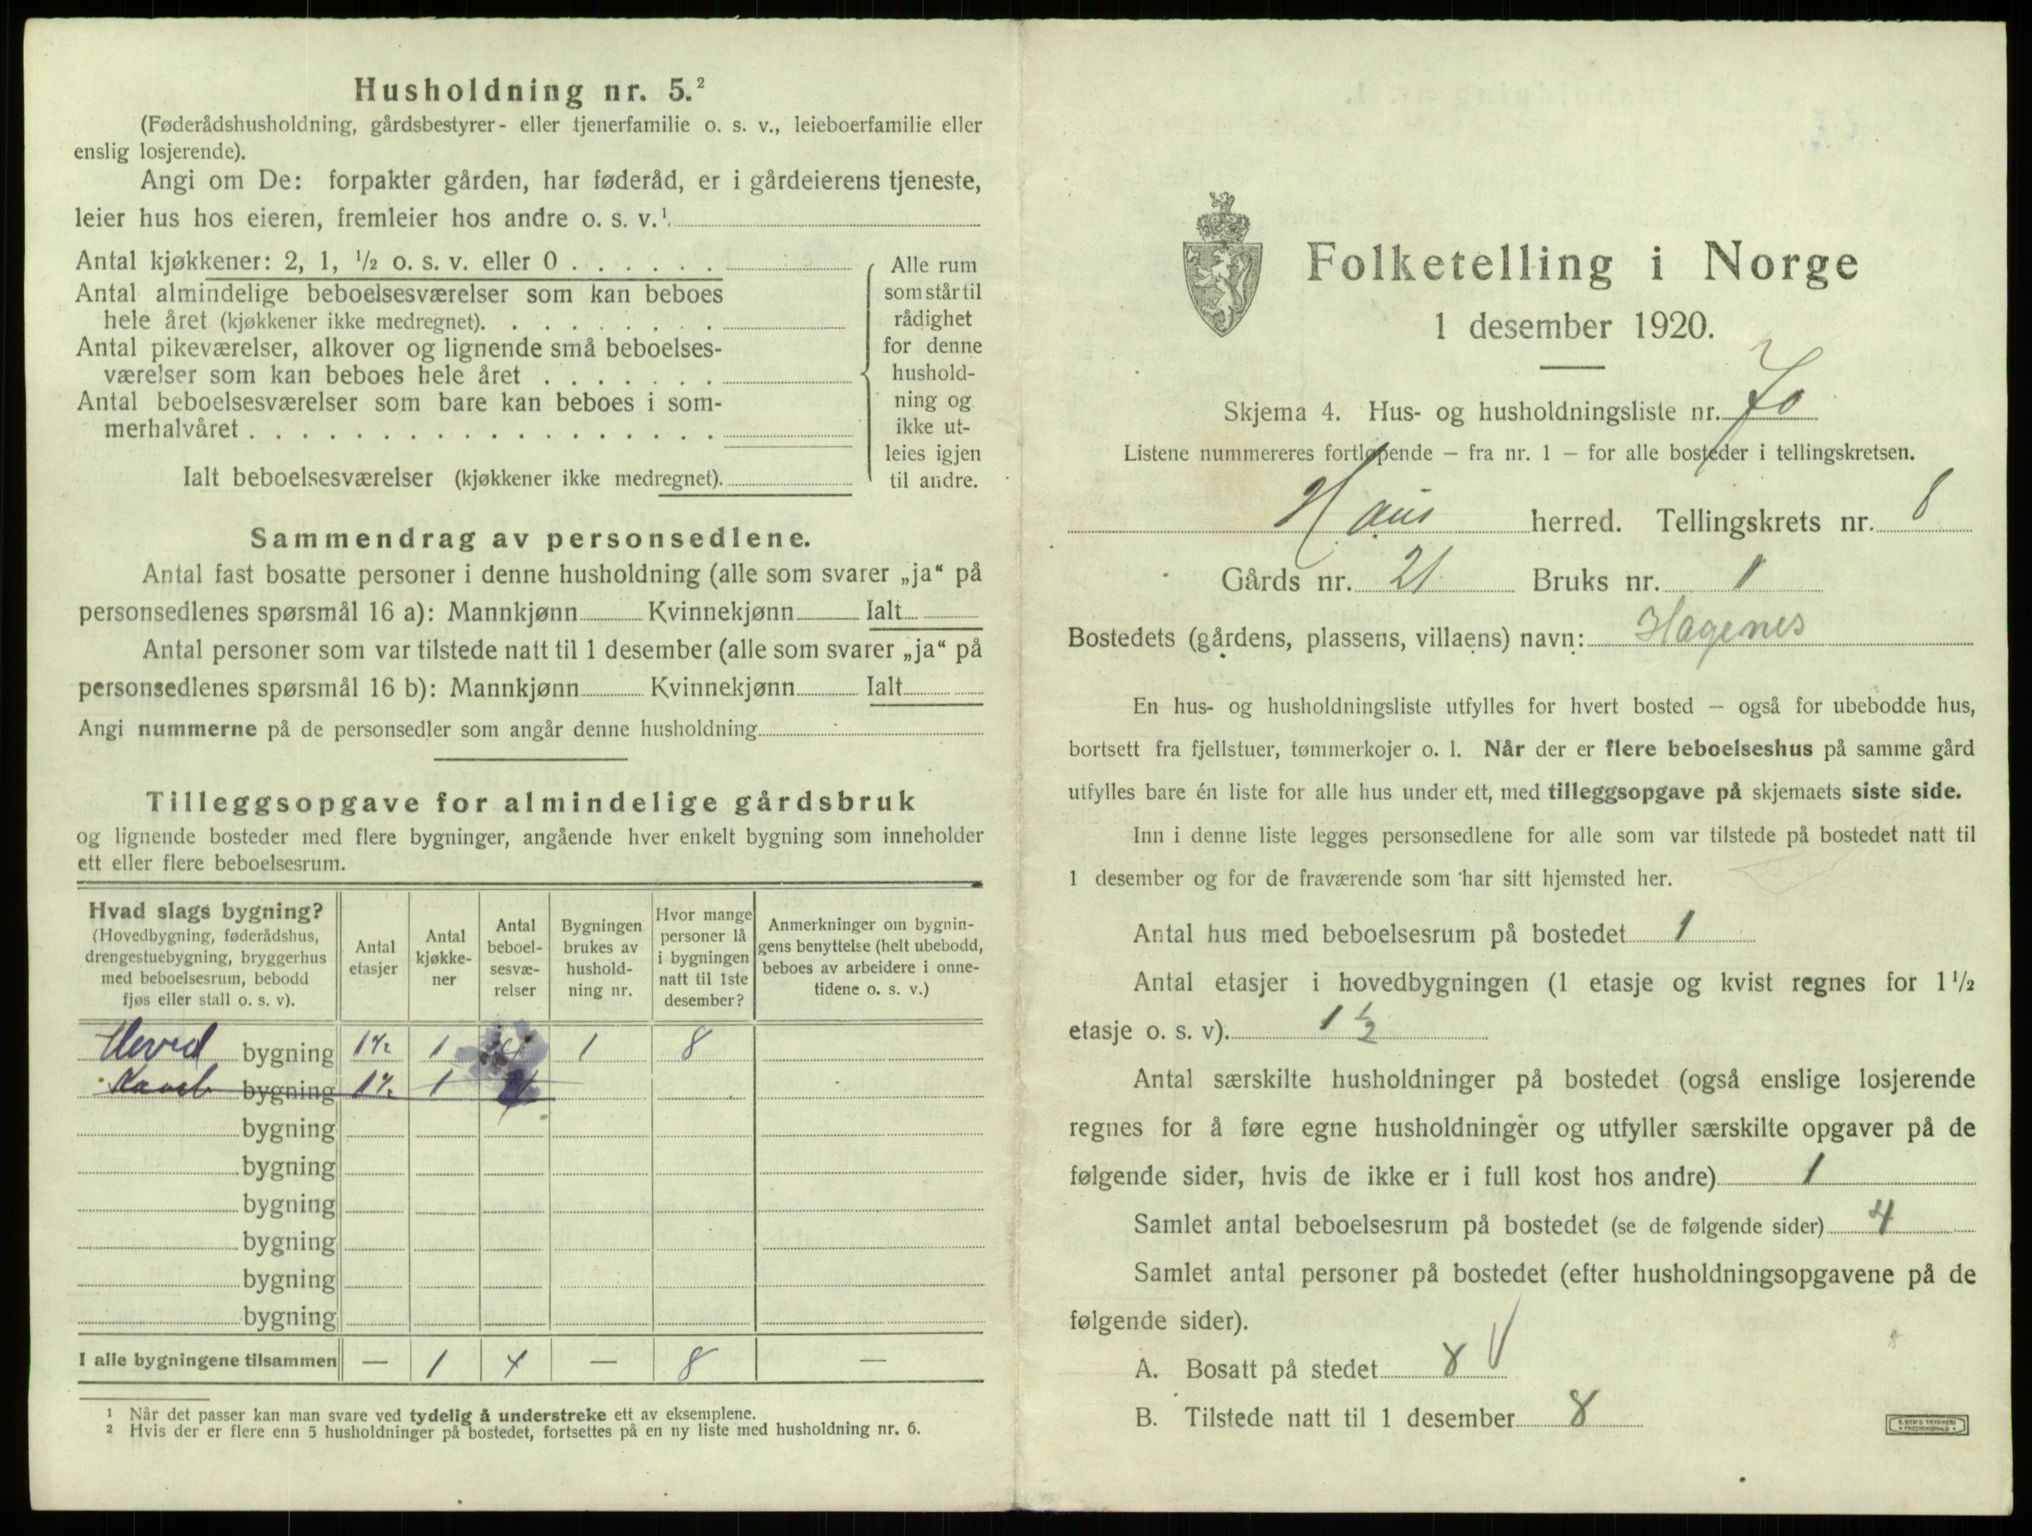 Husholdning nr. 5.²
(Føderådshusholdning, gårdsbestyrer- eller tjenerfamilie o. s. v., leieboerfamilie eller
enslig losjerende).
Angi om De: forpakter gården, har føderåd, er i gårdeierens tjeneste,
leier hus hos eieren, fremleier hos andre o. s. v.¹
Antal kjøkkener: 2, 1, ½ o. s. v. eller 0 . . . . . .
Antal almindelige beboelsesværelser som kan beboes
hele året (kjøkkener ikke medregnet). . . . . . . . .
Antal pikeværelser, alkover og lignende små beboelses-
værelser som kan beboes hele året . . . . . . .
Antal beboelsesværelser som bare kan beboes i som-
merhalvåret . . . . . . . . . . . . . . . . . .
Ialt beboelsesværelser (kjøkkener ikke medregnet).
Alle rum
som står til
rådighet
for denne
hushold-
ning og
ikke ut-
leies igjen
til andre.
Sammendrag av personsedlene.
Antal fast bosatte personer i denne husholdning (alle som svarer „ja“ på
personsedlenes spørsmål 16 a): Mannkjønn Kvinnekjønn Ialt
Antal personer som var tilstede natt til 1 desember (alle som svarer „ja“ på
personsedlenes spørsmål 16 b): Mannkjønn Kvinnekjønn Ialt
Angi nummerne på de personsedler som angår denne husholdning
Tilleggsopgave for almindelige gårdsbruk
og lignende bosteder med flere bygninger, angående hver enkelt bygning som inneholder
ett eller flere beboelsesrum.
Hvad slags bygning?
(Hovedbygning, føderådshus,
drengestuebygning, bryggerhus
med beboelsesrum, bebodd
fjøs eller stall o. s. v).
Antal
etasjer
Antal
kjøkke-
ner
Antal
beboel-
sesvæ-
relser
Bygningen
brukes av
hushold-
ning nr.
Hvor mange
personer lå
i bygningen
natt til 1ste
desember?
Anmerkninger om bygnin-
gens benyttelse (helt ubebodd,
beboes av arbeidere i onne-
tidene o. s. v.)
Hoved bygning 1½ 1 1 8
bygning 1½ 1
bygning
bygning
bygning
bygning
bygning
bygning
I alle bygningene tilsammen — 1 4 — 8 —
¹ Når det passer kan man svare ved tydelig å understreke ett av eksemplene.
² Hvis der er flere enn 5 husholdninger på bostedet, fortsettes på en ny liste med husholdning nr. 6.
Folketelling i Norge
1 desember 1920.
Skjema 4. Hus- og husholdningsliste nr. 70
Listene nummereres fortløpende – fra nr. 1 – for alle bosteder i tellingskretsen.
Haus herred. Tellingskrets nr. 8
Gårds nr. 21 Bruks nr. 1
Bostedets (gårdens, plassens, villaens) navn: Hagenes
En hus- og husholdningsliste utfylles for hvert bosted – også for ubebodde hus,
bortsett fra fjellstuer, tømmerkojer o. l. Når der er flere beboelseshus på samme gård
utfylles bare én liste for alle hus under ett, med tilleggsopgave på skjemaets siste side.
Inn i denne liste legges personsedlene for alle som var tilstede på bostedet natt til
1 desember og for de fraværende som har sitt hjemsted her.
Antal hus med beboelsesrum på bostedet 1
Antal etasjer i hovedbygningen (1 etasje og kvist regnes for 1½
etasje o. s. v). 1½
Antal særskilte husholdninger på bostedet (også enslige losjerende
regnes for å føre egne husholdninger og utfyller særskilte opgaver på de
følgende sider, hvis de ikke er i full kost hos andre) 1
Samlet antal beboelsesrum på bostedet (se de følgende sider) 4
Samlet antal personer på bostedet (efter husholdningsopgavene på de
følgende sider).
A. Bosatt på stedet 8
B. Tilstede natt til 1 desember 8